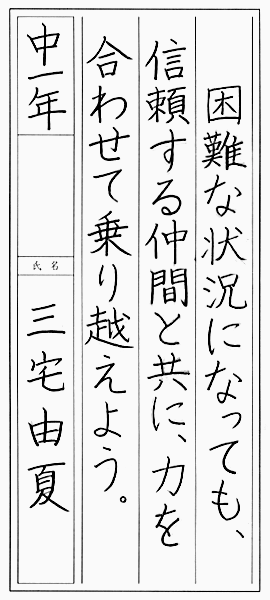 困難な状況になっても、
信頼する仲間と共に、力を
合わせて乗り越えよう。
中一年
氏名
三宅由夏